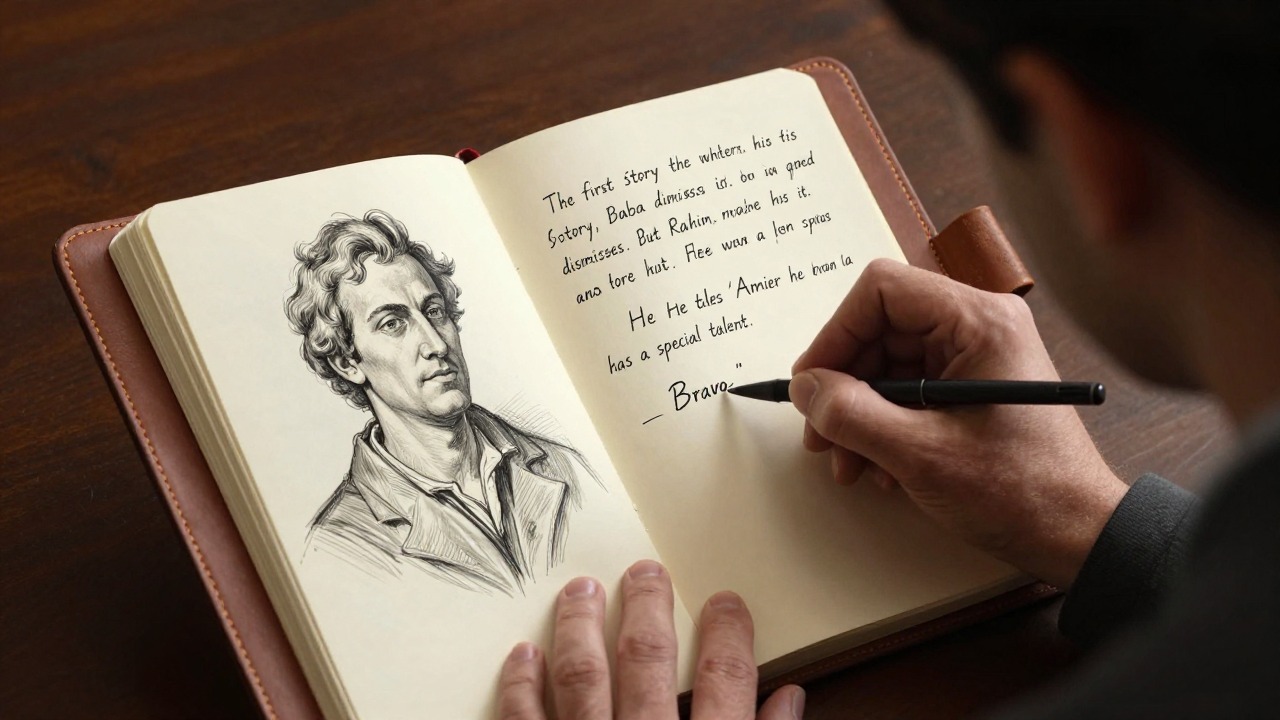 The first story the whitern. his tis
Sotory, Baba dimisss id. bo ia gned
dismisses. But Rahim. his it.
ano tore hut. Flee was a spros
He He tles 'Amier he bvon la
has a special talent.
— Bravo"